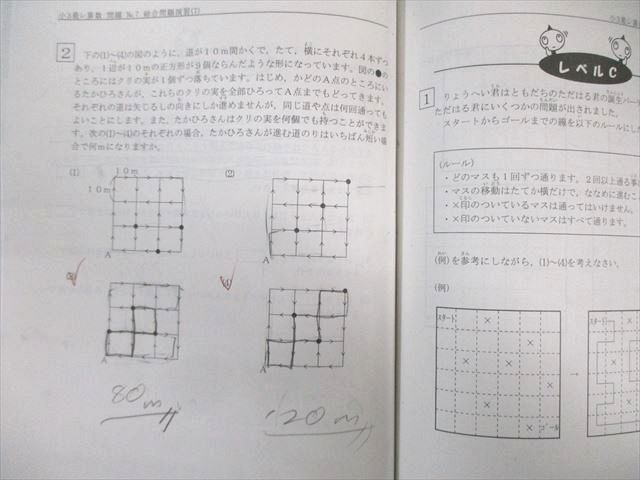 小3最レ算数 問題 №7 総合問題演習(7)
2
下の(1)～(4)の図のように、道が10m間かくで、たて、横にそれぞれ4本ずつ
あり、1辺が10mの正方形が9個ならんだような形になっています。図の●の
ところにはクリの実が1個ずつ落ちています。はじめ、かどのA点のところにい
るたかひろさんが、これらのクリの実を全部ひろってA点までもどってきます。
それぞれの道は矢じるしの向きにしか進めませんが、同じ道や点は何回通っても
よいことにします。また、たかひろさんはクリの実を何個でも持つことができま
す。次の(1)～(4)のそれぞれの場合、たかひろさんが進む道のりはいちばん短い場
合で何mになりますか。
(1)
10m
10m
A
(2)
A
A
80m
A
120m
小3最レ算
レベルC
1
りょうへい君はともだちのただはる君の誕生パー
ただはる君にいくつかの問題が出されました。
スタートからゴールまでの線を以下のルールにし
(ルール)
・どのマスも1回ずつ通ります。2回以上通る事
・マスの移動はたてか横だけで、ななめに進むこ
・×印のついているマスは通ってはいけません。
・×印のついていないマスはすべて通ります。
(例)を参考にしながら、(1)～(4)を考えなさい。
(例)
スタート
×
×
×
×
×
×
ゴール
→
スタート